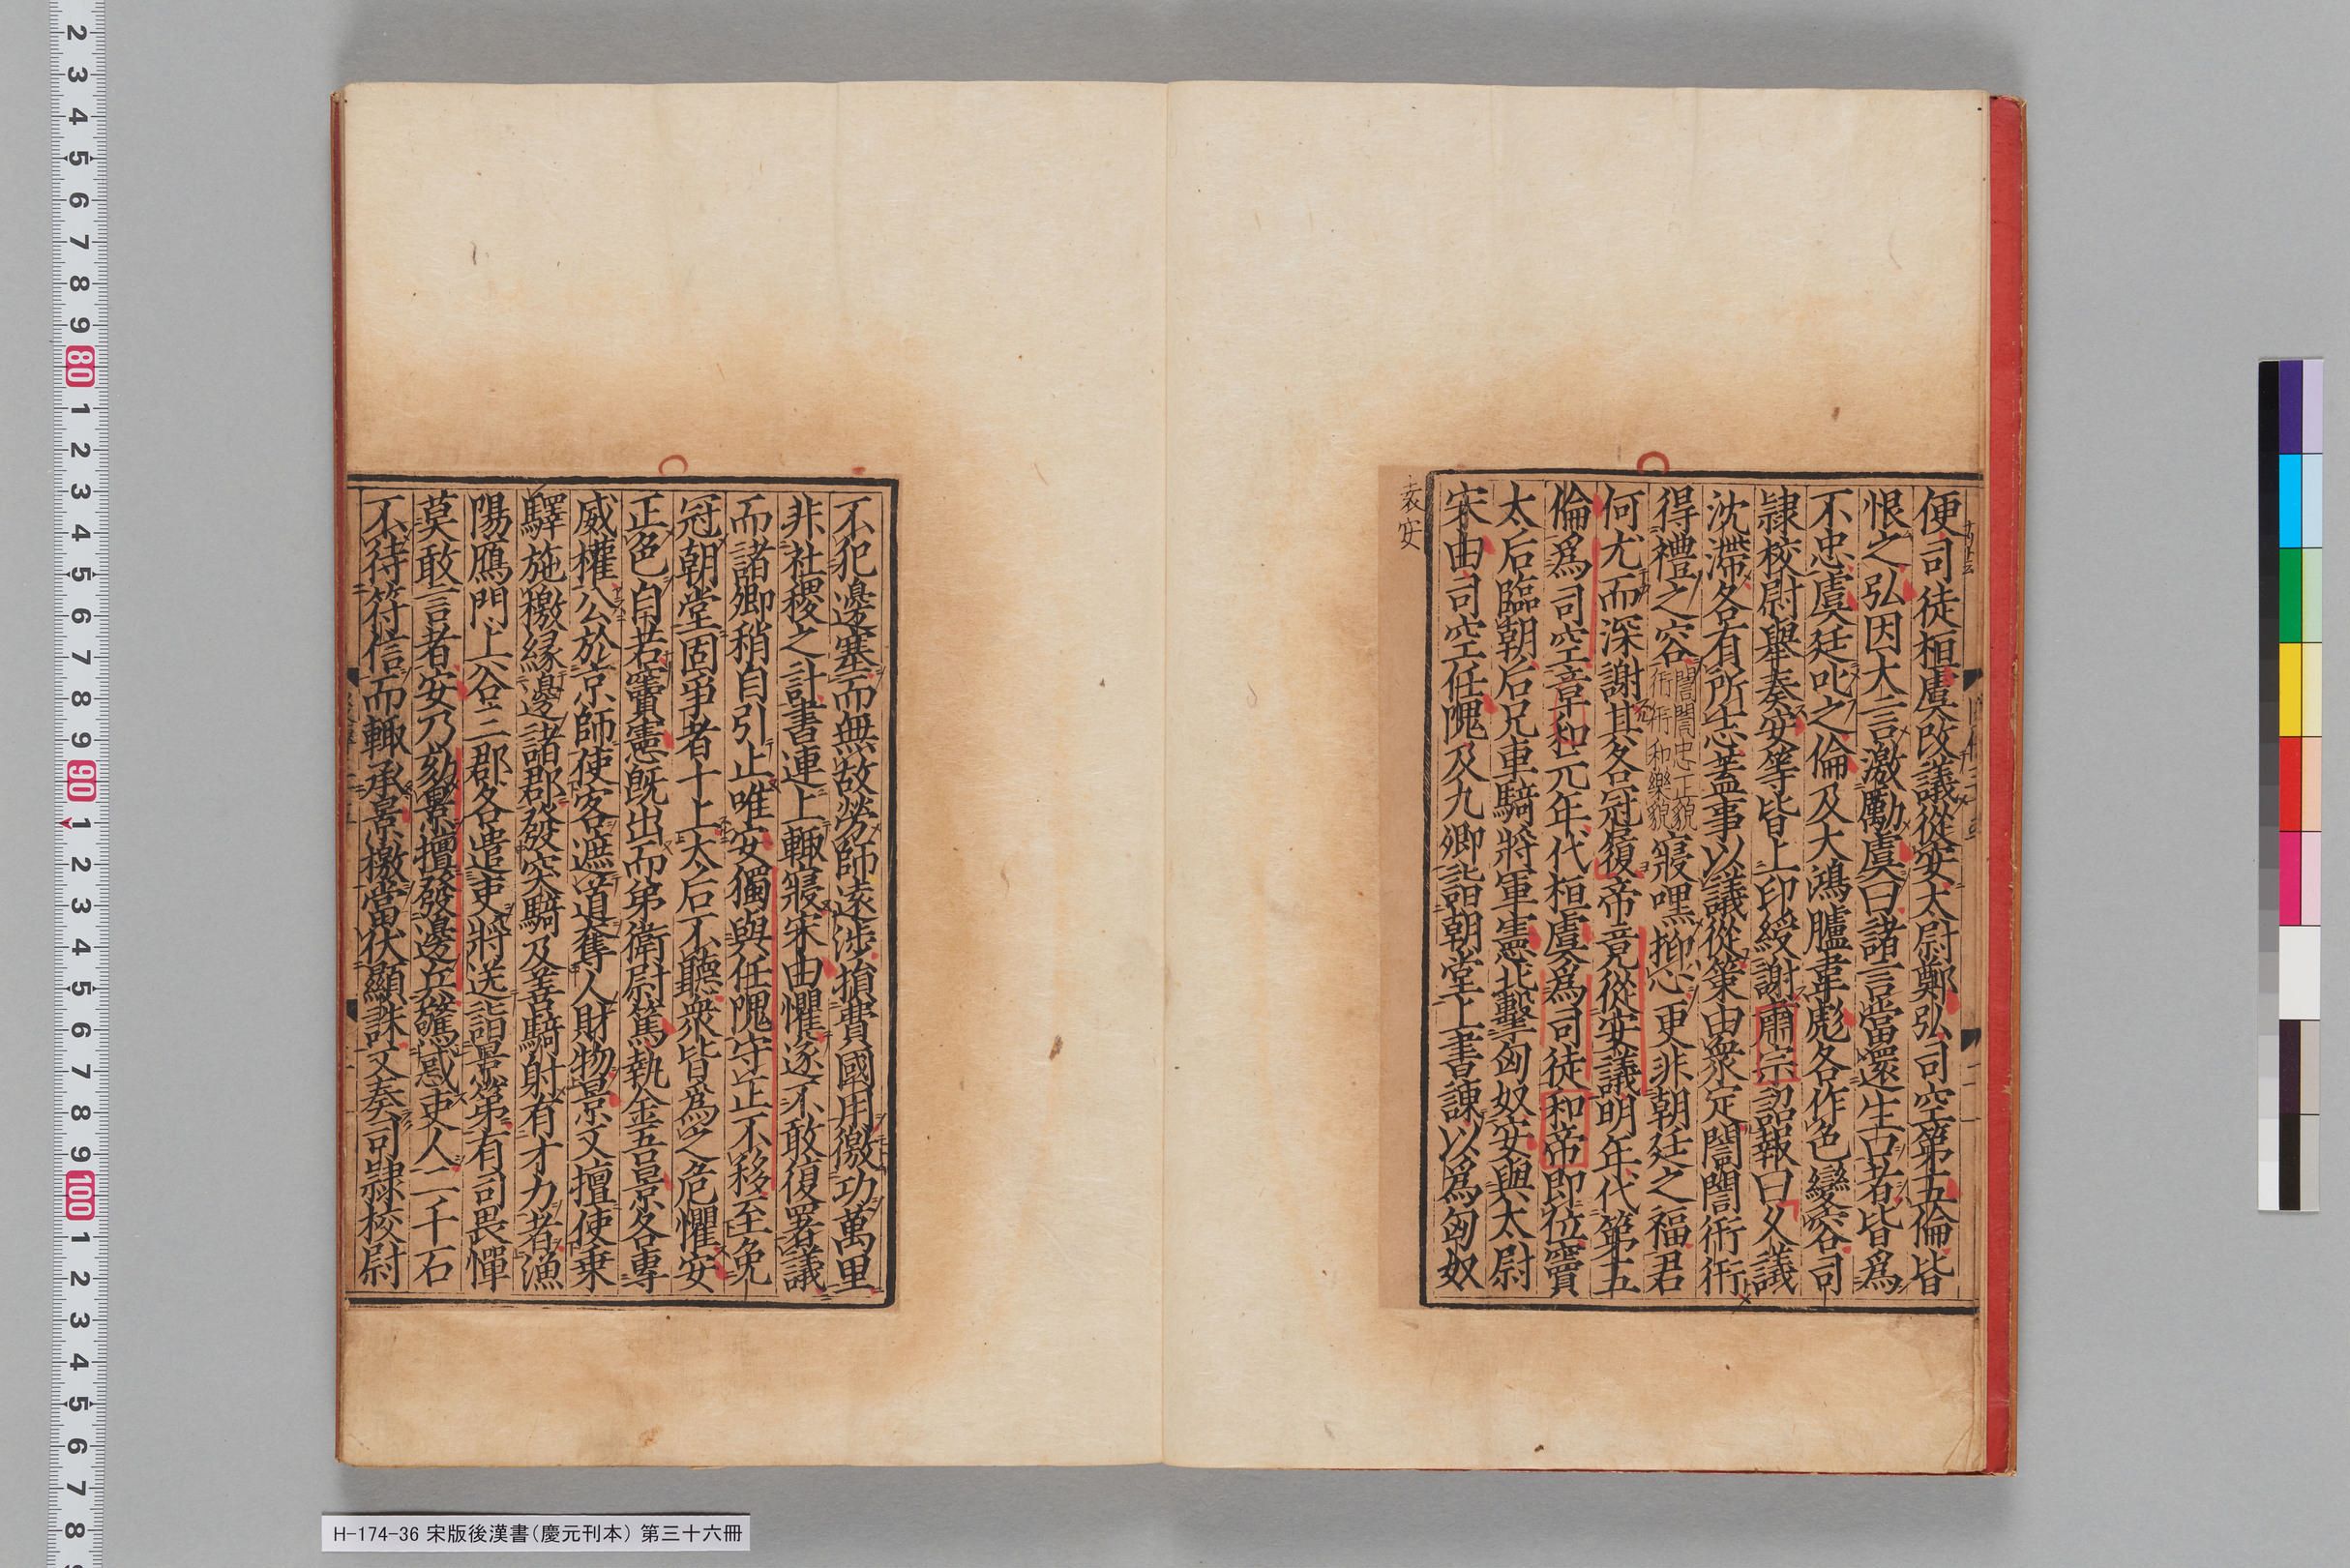 便司徒桓虞改議從安太尉鄭弘司空第五倫皆
恨之弘因大言激勵虞曰諸言當還生口者皆爲
不忠虞廷叱之倫及大鴻臚韋彪各作色變容司
隷校尉舉奏安等皆上印綬謝肅宗詔報曰久議
沈滯各有所志蓋事以議從策由衆定誾誾衎衎
得禮之容誾誾忠正貌衎衎和樂貌寢嘿抑心更非朝廷之福君
何尤而深謝其各冠履帝竟從安議明年代第五
倫爲司空章和元年代桓虞爲司徒和帝即位竇
太后臨朝后兄車騎將軍憲北擊匈奴安與太尉
宋由司空任隗及九卿詣朝堂上書諫以爲匈奴
袁安
不犯邊塞而無故勞師遠涉損費國用徼功萬里
非社稷之計書連上輒寢宋由懼遂不敢復署議
而諸卿稍自引止唯安獨與任隗守正不移至免
冠朝堂固爭者十上太后不聽衆皆爲之危懼安
正色自若竇憲既出而弟衛尉篤執金吾景各專
威權公於京師使客遮道奪人財物景又擅使乗
驛施檄緣邊諸郡發突騎及善騎射有才力者漁
陽鴈門上谷三郡各遣吏將送詣景第有司畏憚
莫敢言者安乃劾景擅發邊兵驚惑吏人二千石
不待符信而輒承景檄當伏顯誅又奏司隷校尉
H-174-36 宋版後漢書(慶元刊本) 第三十六冊